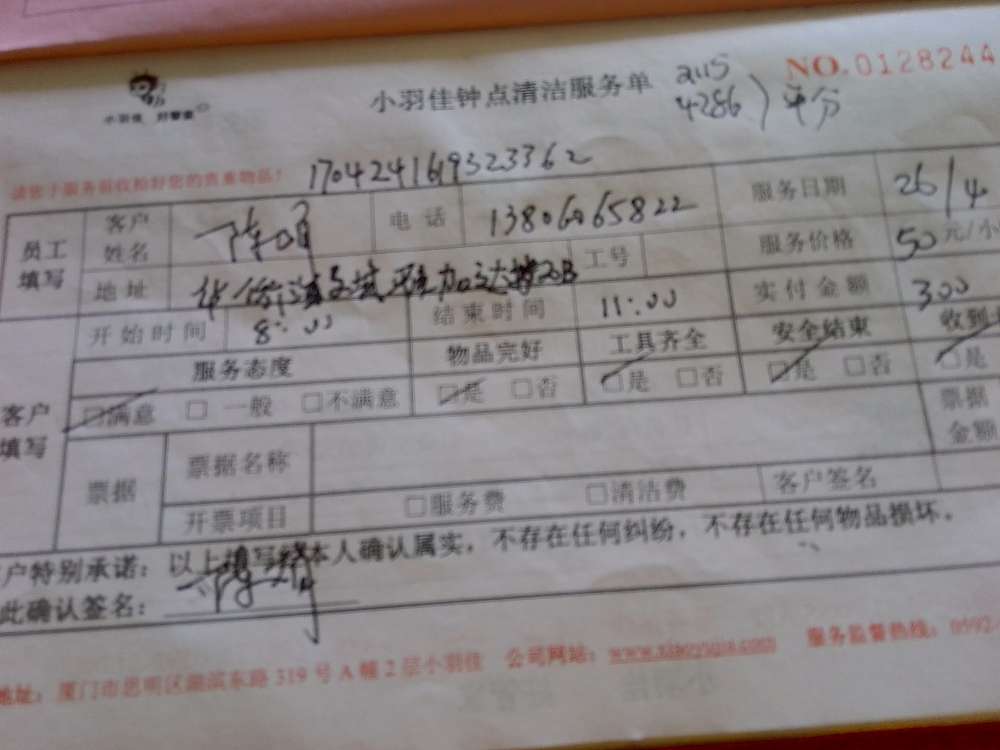 小羽佳钟点清洁服务单 2115 NO.0128244
4286 平分
小羽佳 好管家
请您于服务前收拾好您的贵重物品! 1704241619323362
员工填写 客户姓名 陈 电话 13806065822 服务日期 26/4
地址 工号 服务价格 50元/小
开始时间 8:00 结束时间 11:00 实付金额 300
客户填写 服务态度 物品完好 工具齐全 安全结束 收到
□满意 □一般 □不满意 □是 □否 □是 □否 □是 □否 □是
票据 票据名称 票据金额
开票项目 □服务费 □清洁费 客户签名
户特别承诺: 以上填写经本人确认属实,不存在任何纠纷,不存在任何物品损坏。
此确认签名: 陈
地址: 厦门市思明区湖滨东路319号A幢2层小羽佳 公司网站: 服务监督热线: 0592-